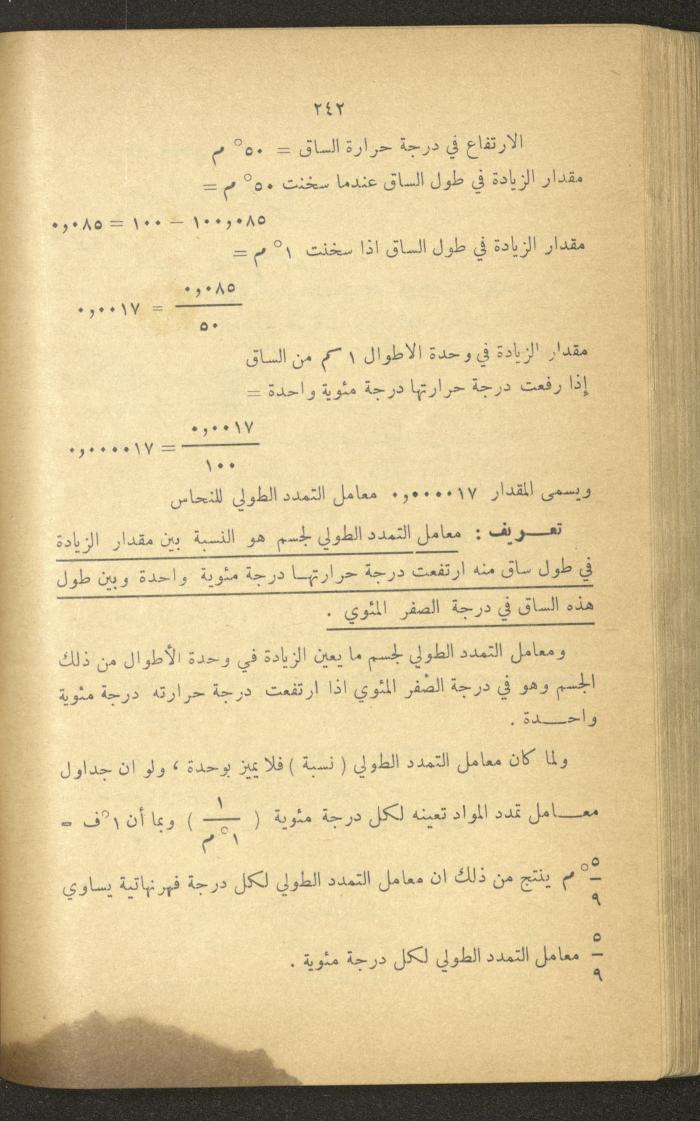 ٢٤٢
الارتفاع في درجة حرارة الساق = ٥٠° م
مقدار الزيادة في طول الساق عندما سخنت ٥٠° م =
١٠٠,٠٨٥ – ١٠٠ = ٠,٠٨٥
مقدار الزيادة في طول الساق اذا سخنت ١° م =
٠,٠٨٥
= ٠,٠٠١٧
٥٠
مقدار الزيادة في وحدة الاطوال ١ سم من الساق
إذا رفعت درجة حرارتها درجة مئوية واحدة =
٠,٠٠١٧
= ٠,٠٠٠٠١٧
١٠٠
ويسمى المقدار ٠,٠٠٠٠١٧ معامل التمدد الطولي للنحاس
تعـــريف : معامل التمدد الطولي لجسم هو النسبة بين مقدار الزيادة
في طول ساق منه ارتفعت درجة حرارتهـا درجة مئوية واحدة وبين طول
هذه الساق في درجة الصفر المئوي .
ومعامل التمدد الطولي لجسم ما يعين الزيادة في وحدة الأطوال من ذلك
الجسم وهو في درجة الصفر المئوي اذا ارتفعت درجة حرارته درجة مئوية
واحـــدة .
ولما كان معامل التمدد الطولي ( نسبة ) فلا يميز بوحدة ، ولو ان جداول
معـــامل تمدد المواد تعينه لكل درجة مئوية ( ١ / ١° م ) وبما أن ١° ف =
٥/٩ ° م ينتج من ذلك ان معامل التمدد الطولي لكل درجة فهرنهاتية يساوي
٥/٩ معامل التمدد الطولي لكل درجة مئوية .